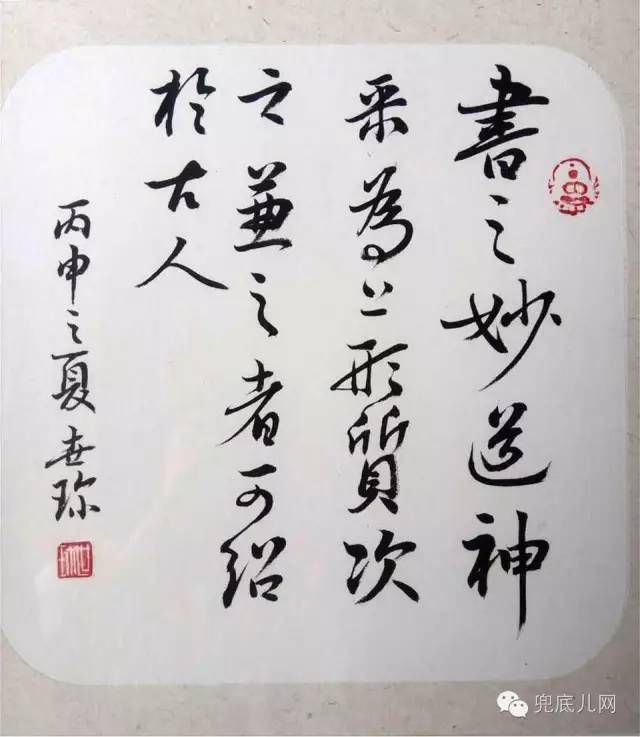 書之妙道神
采為上形質次
之兼之者可紹
於古人
丙申之夏世珍
兜底儿网